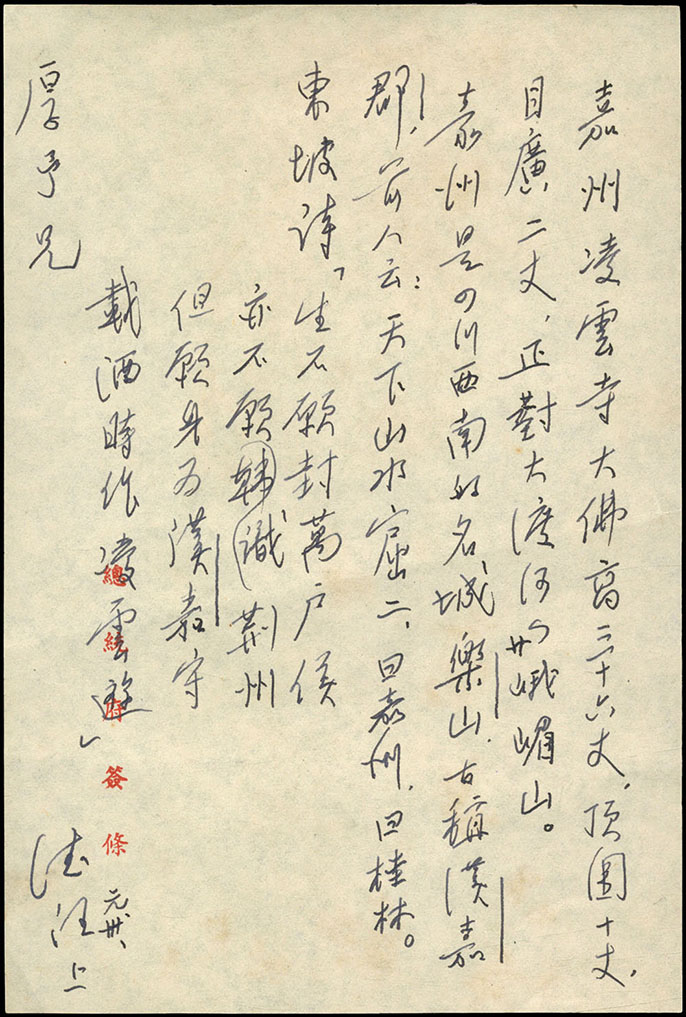 嘉州凌雲寺大佛高三十六丈,頂圍十丈,
目廣二丈,正對大渡河與峨嵋山。
嘉州是四川西南的名城樂山,古稱漢嘉
郡,前人云:天下山水窟二,曰嘉州,曰桂林。
東坡詩「生不願封萬戶侯
亦不願韓識荊州
但願身為漢嘉守
載酒時作凌雲遊」
厚予兄
上
元卅、
總統府簽條